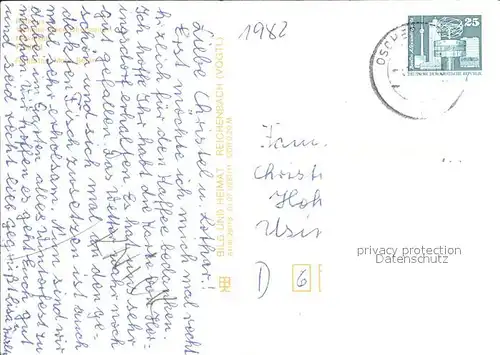 1982
Liebe Christel u. Lothar!
Erst möchte ich mich mal recht
herzlich für den Kaffee bedanken.
Ich hoffe Ihr habt die Karte von
erhalten. Es hat mir sehr
gut gefallen. Das Wetter war noch
schön und sich mal an den ge-
deckten Tisch zu setzen ist auch
mal sehr erholsam. Nun sind wir
dabei im Garten alles winterfest zu
machen. Wir hoffen es geht Euch gut
und seid recht lieb gegrüßt
BILD UND HEIMAT REICHENBACH (VOGTL)
OSCH
25
DEUTSCHE DEMOKRATISCHE REPUBLIK
Fam.
Christ
Hoh
Usin
D 6
privacy protection
Datenschutz